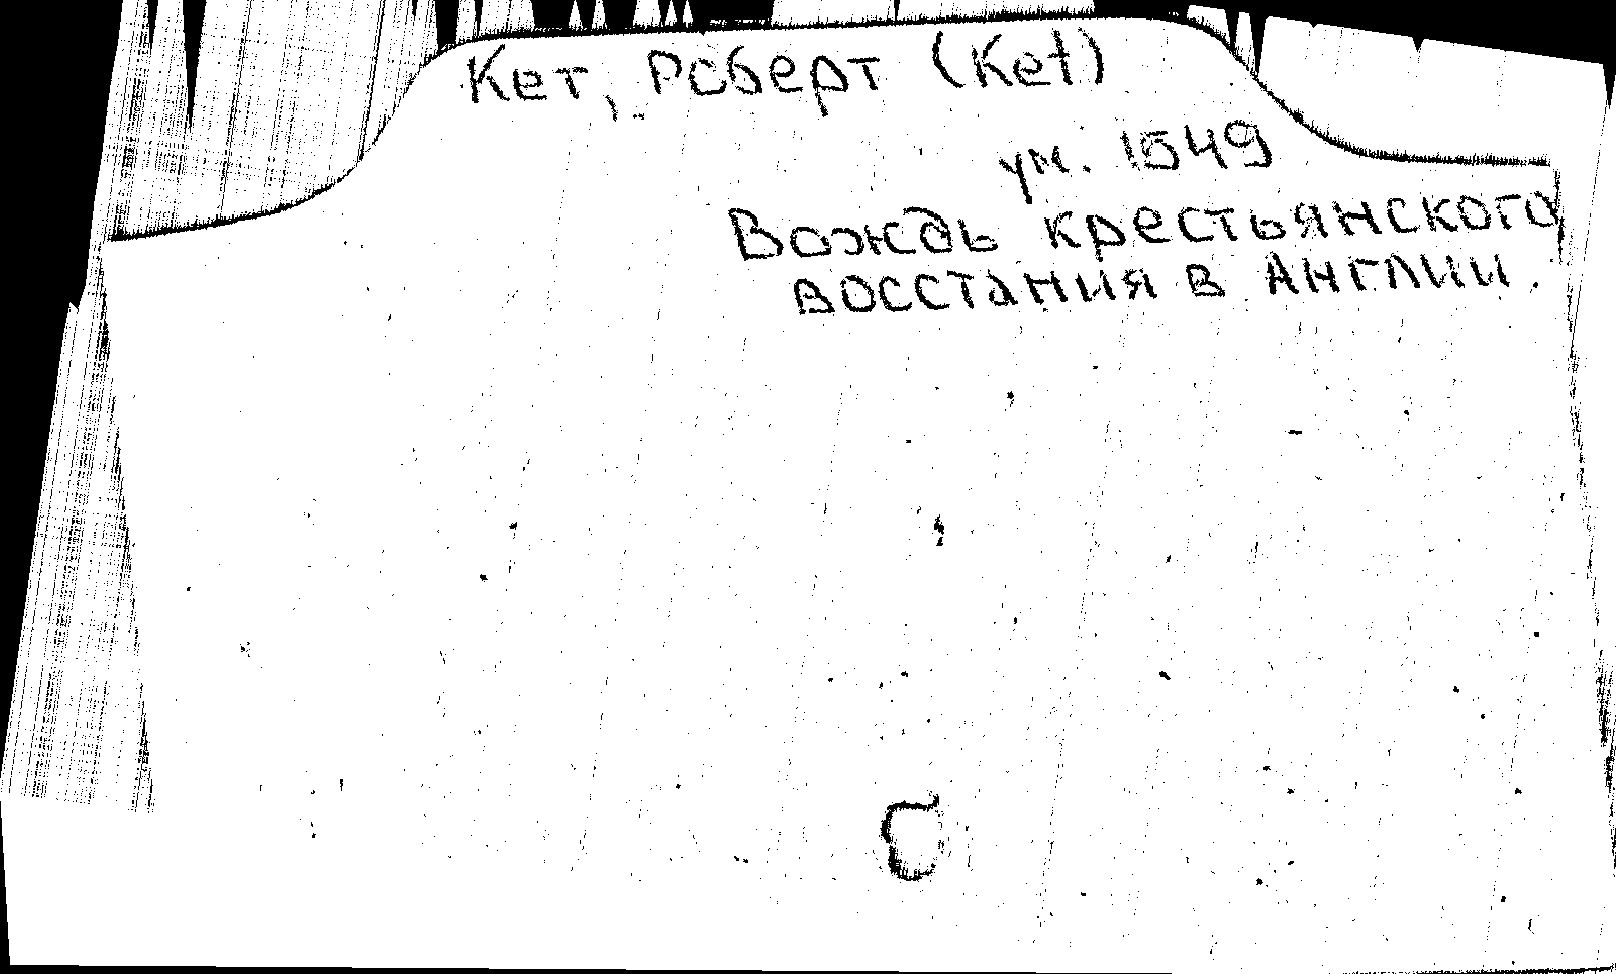 Кет, Роберт (Ket)
ум. 1549
Вождь крестьянского
восстания в Англии.